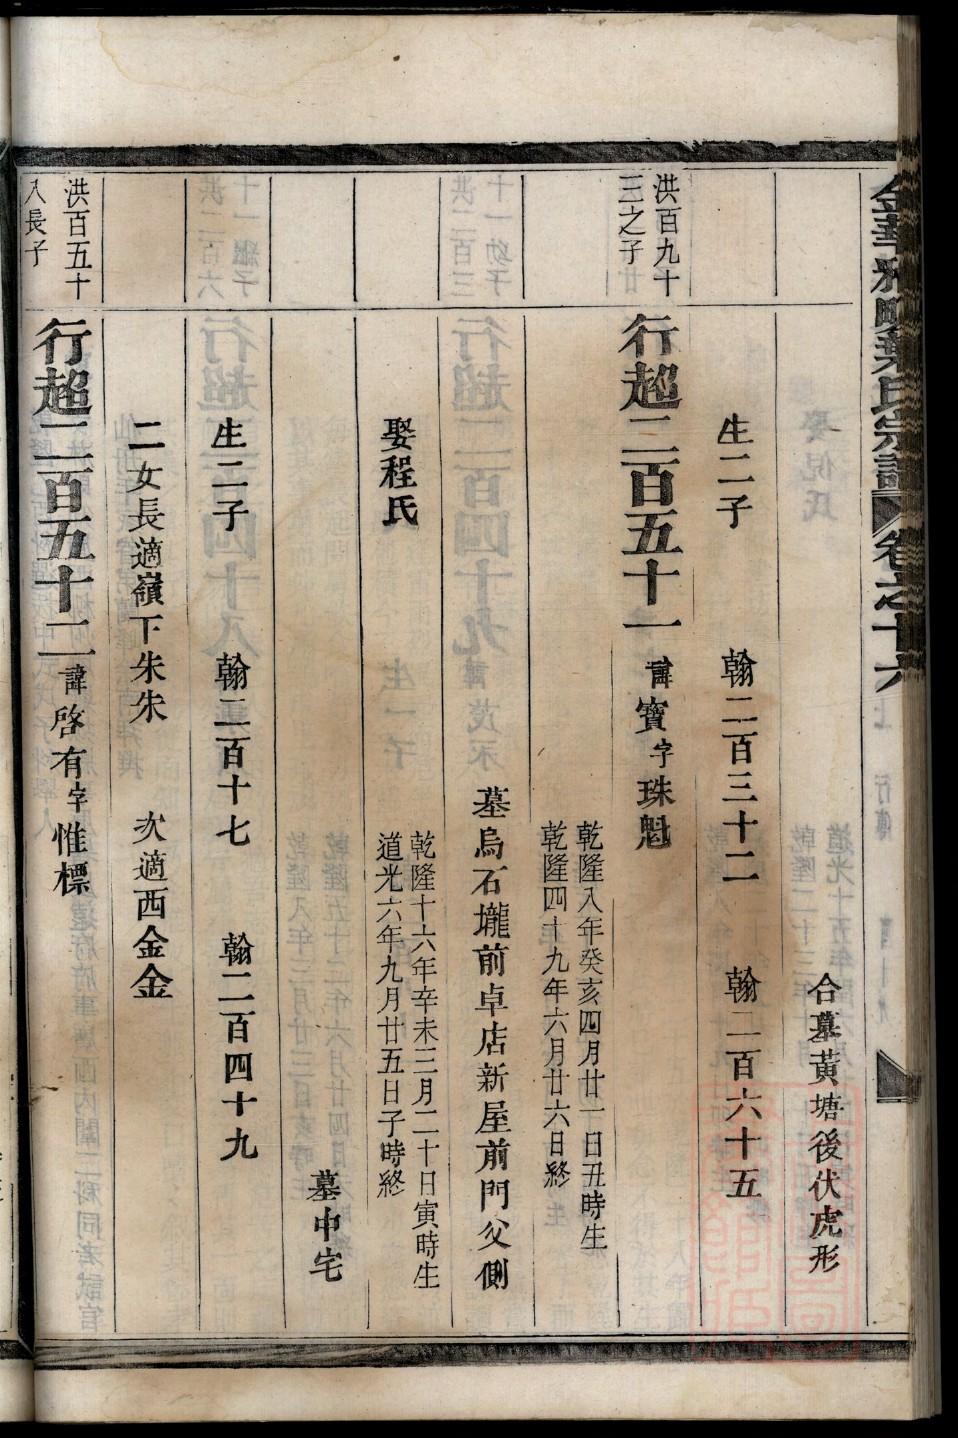 合墓黃塘後伏虎形
生二子 翰二百三十二 翰二百六十五
洪百九十
三之子
行超二百五十一 諱寶字珠魁
乾隆八年癸亥四月廿一日丑時生
乾隆四十九年六月廿六日終
墓烏石壠前卓店新屋前門父側
娶程氏
乾隆十六年辛未三月二十日寅時生
道光六年九月廿五日子時終
墓中宅
生二子 翰二百十七 翰二百四十九
二女長適嶺下朱朱 次適西金金
洪百五十
八長子
行超二百五十二 諱啓有字惟標